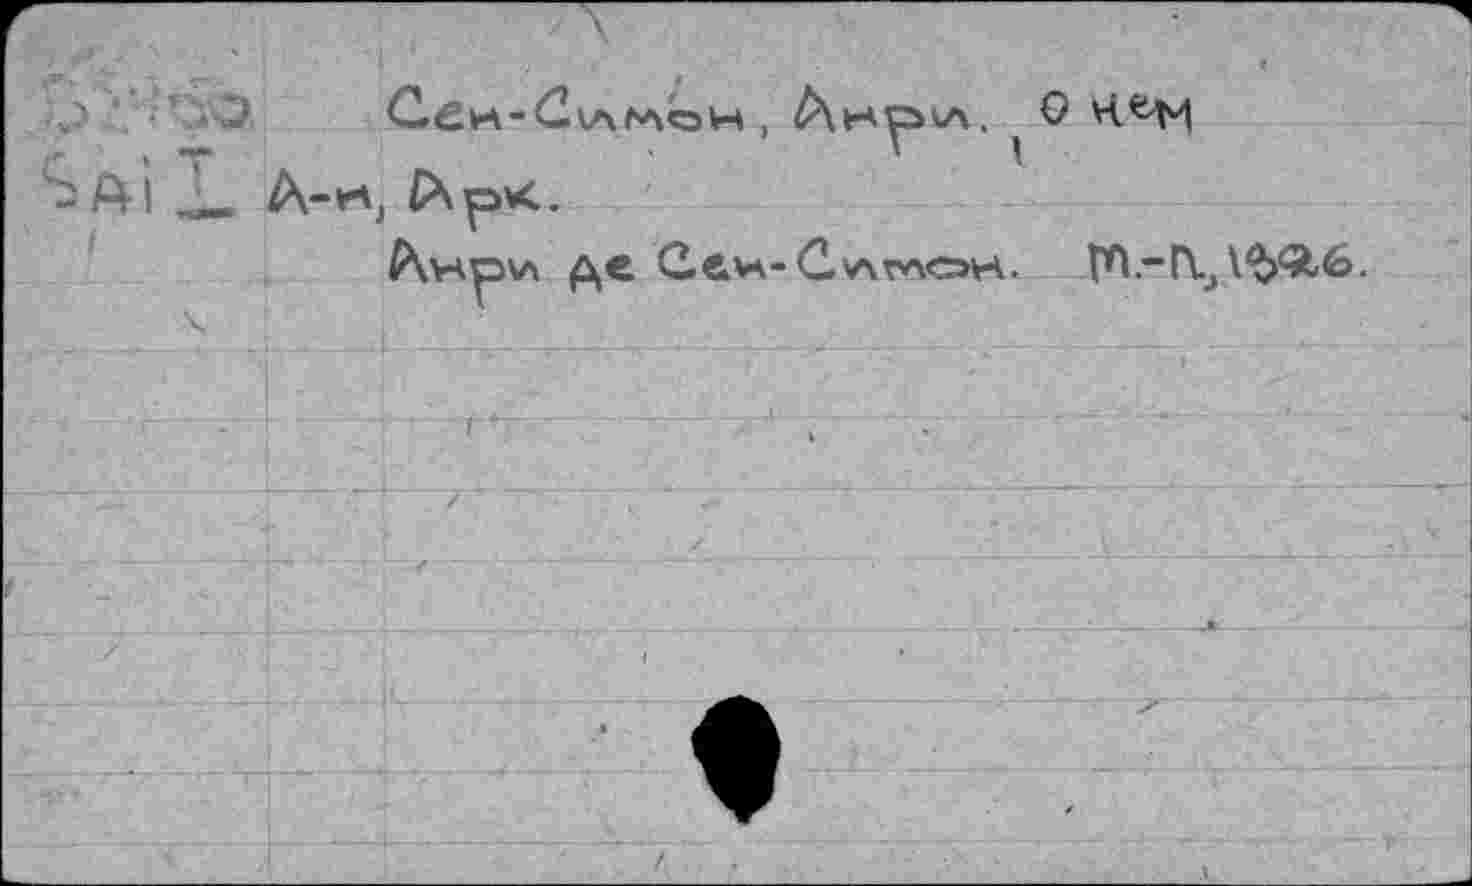 Сен-Симон, Анри. О нем
А-н, Арк.
Анри де Сен-Симон. М.-Л., 1926.